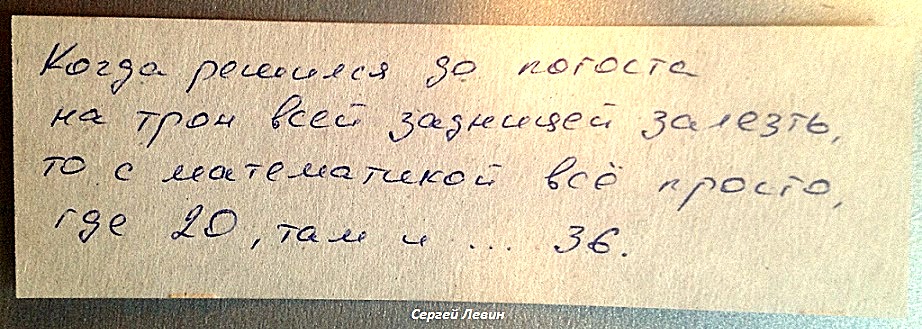 Когда решился до погоста
на трон всей задницей залезть,
то с математикой всё просто,
где 20, там и ... 36.
Сергей Левин